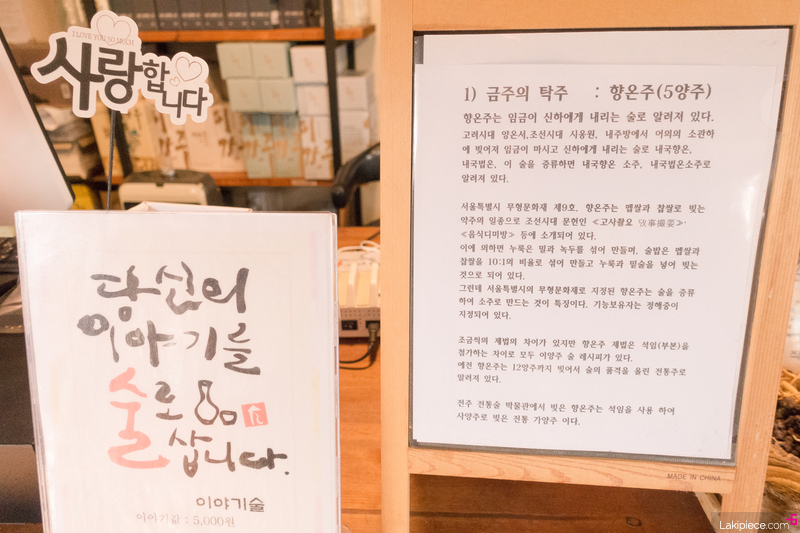 I LOVE YOU SO MUCH
사랑합
니다
당신의
이야기를
술로
삽니다.
이야기술
이야기값 : 5,000원
1) 금주의 탁주 : 향온주(5양주)
향온주는 임금이 신하에게 내리는 술로 알려져 있다.
고려시대 양온서,조선시대 사옹원, 내주방에서 어의의 소관하
에 빚어져 임금이 마시고 신하에게 내리는 술로 내국향온,
내국법온, 이 술을 증류하면 내국향온 소주, 내국법온소주로
알려져 있다.
서울특별시 무형문화재 제9호, 향온주는 멥쌀과 찹쌀로 빚는
약주의 일종으로 조선시대 문헌인 ≪고사촬요 攷事撮要≫·
≪음식디미방≫ 등에 소개되어 있다.
이에 의하면 누룩은 밀과 녹두를 섞어 만들며, 술밥은 멥쌀과
찹쌀을 10:1의 비율로 섞어 만들고 누룩과 밑술을 넣어 빚는
것으로 되어 있다.
그런데 서울특별시의 무형문화재로 지정된 향온주는 술을 증류
하여 소주로 만드는 것이 특징이다. 기능보유자는 정해중이
지정되어 있다.
조금씩의 제법의 차이가 있지만 향온주 제법은 석임(부본)을
첨가하는 차이로 모두 이양주 술 레시피가 있다.
예전 향온주는 12양주까지 빚어서 술의 품격을 올린 전통주로
알려져 있다.
전주 전통술 박물관에서 빚은 향온주는 석임을 사용 하여
사양주로 빚은 전통 가양주 이다.
MADE IN CHINA
Lakipiece.com